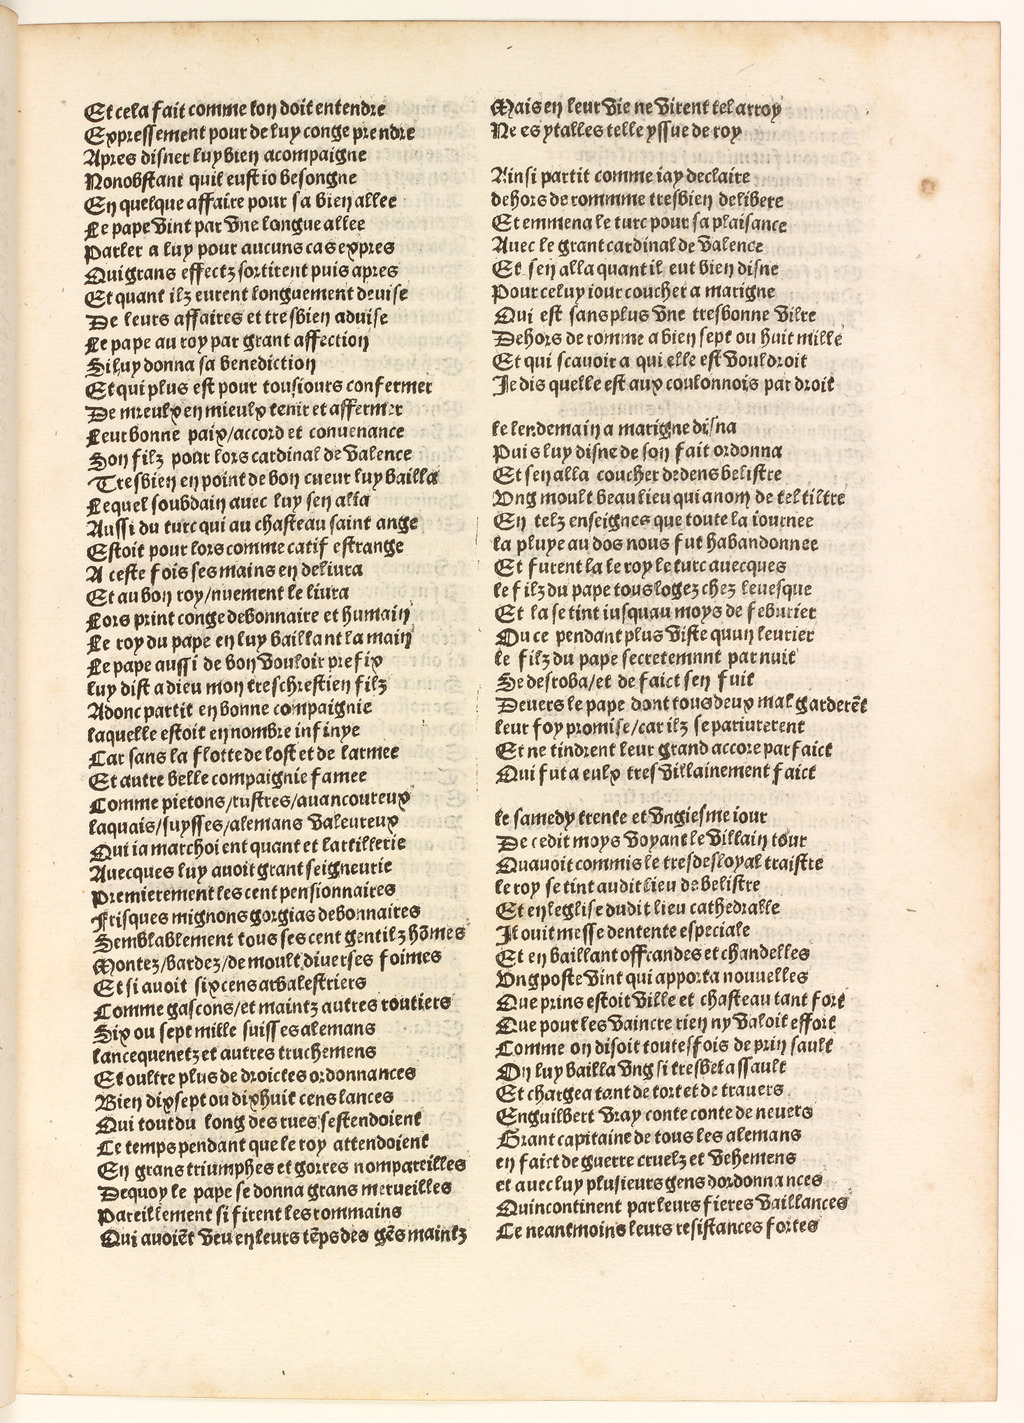 Et cela fait comme lon doit entendre
Expressement pour de luy conge prendre
Apres disner luy bien acompaigne
Nonobstant quil eust io besongne
En quelque affaire pour sa bien allee
Le pape vint par vne longue allee
Parler a luy pour aucuns cas expres
Qui grans effectz sortirent puis apres
Et quant ilz eurent longuement deuise
De leurs affaires et tresbien aduise
Le pape au roy par grant affection
Si luy donna sa benediction
Et qui plus est pour tousiours confermer
De mieulx en mieulx tenir et affermer
Leur bonne paix/accord et conuenance
Son filz pour lors cardinal de valence
Tresbien en point de bon cueur luy bailla
Lequel soubdain auec luy sen alla
Aussi du turc qui au chasteau saint ange
Estoit pour lors comme catif estrange
A ceste fois ses mains en deliura
Et au bon roy/nuement le liura
Lors print conge debonnaire et humain
Le roy du pape en luy baillant la main
Le pape aussi de bon vouloir prefix
luy dist a dieu mon treschrestien filz
Adonc partit en bonne compaignie
laquelle estoit en nombre infinye
Car sans la flotte de lost et de larmee
Et autre belle compaignie famee
Comme pietons/rustres/auancoureux
laquais/suysses/alemans valeureux
Qui ia marchoient quant et lartillerie
Auecques luy auoit grant seigneurie
Premierement les cent pensionnaires
Frisques mignons gorgias debonnaires
Semblablement tous ses cent gentilz hões
Montez/bardez/de moult diuerses foimes
Et si auoit six cens arbalestriers
Comme gascons/et maintz autres routiers
Six ou sept mille suisses alemans
lancequenetz et autres truchemens
Et oultre plus de droictes ordonnances
Bien dixsept ou dixhuit cens lances
Qui tout du long des rues sestendoient
Ce temps pendant que le roy attendoient
En grans triumphes et gorres nompareilles
Dequoy le pape se donna grans merueilles
Pareillement si firent les rommains
Qui auoiẽt veu en leurs tẽps des gẽs maintz
Mais en leur vie ne virent tel arroy
Ne es ytalles telle yssue de roy
Ainsi partit comme iay declaire
dehors de romme tresbien delibere
Et emmena le turc pour sa plaisance
Auec le grant cardinal de valence
Et sen alla quant il eut bien disne
Pour celuy iour coucher a marigne
Qui est sans plus vne tresbonne ville
Dehors de romme a bien sept ou huit mille
Et qui scauoir a qui elle est vouldroit
Je dis quelle est aux coulonnois par droit
le lendemain a marigne disna
Puis luy disne de son fait ordonna
Et sen alla coucher dedens belistre
Vng moult beau lieu qui a nom de tel tiltre
En telz enseignes que toute la iournee
la pluye au dos nous fut habandonnee
Et furent la le roy le turc auecques
le filz du pape tous logez chez leuesque
Et la se tint iusquau moys de feburier
Ou ce pendant plus viste quun leurier
le filz du pape secretemnt par nuit
Se desroba/et de faict sen fuit
Deuers le pape dont tous deux mal garderẽt
leur foy promise/car ilz se pariurerent
Et ne tindrent leur grand accore parfaict
Qui fut a eulx tres villainement faict
le samedy trente et vngiesme iour
De cedit moys voyant le villain tour
Quauoit commis le tresdesloyal traistre
le roy se tint audit lieu de belistre
Et en leglise dudit lieu cathedralle
Il ouit messe dentente especiale
Et en baillant offrandes et chandelles
Vng poste vint qui apporta nouuelles
Que prins estoit ville et chasteau tant fort
Que pour les vaincre rien ny valoit effort
Comme on disoit toutesfois de prin sault
On luy bailla vng si tresbel assault
Et chargea tant de tort et de trauers
Enguilbert vray conte conte de neuers
Grant capitaine de tous les alemans
en faict de guerre cruelz et vehemens
et auec luy plusieurs gens dordonnances
Quincontinent par leurs fieres vaillances
Ce neantmoins leurs resistances fortes